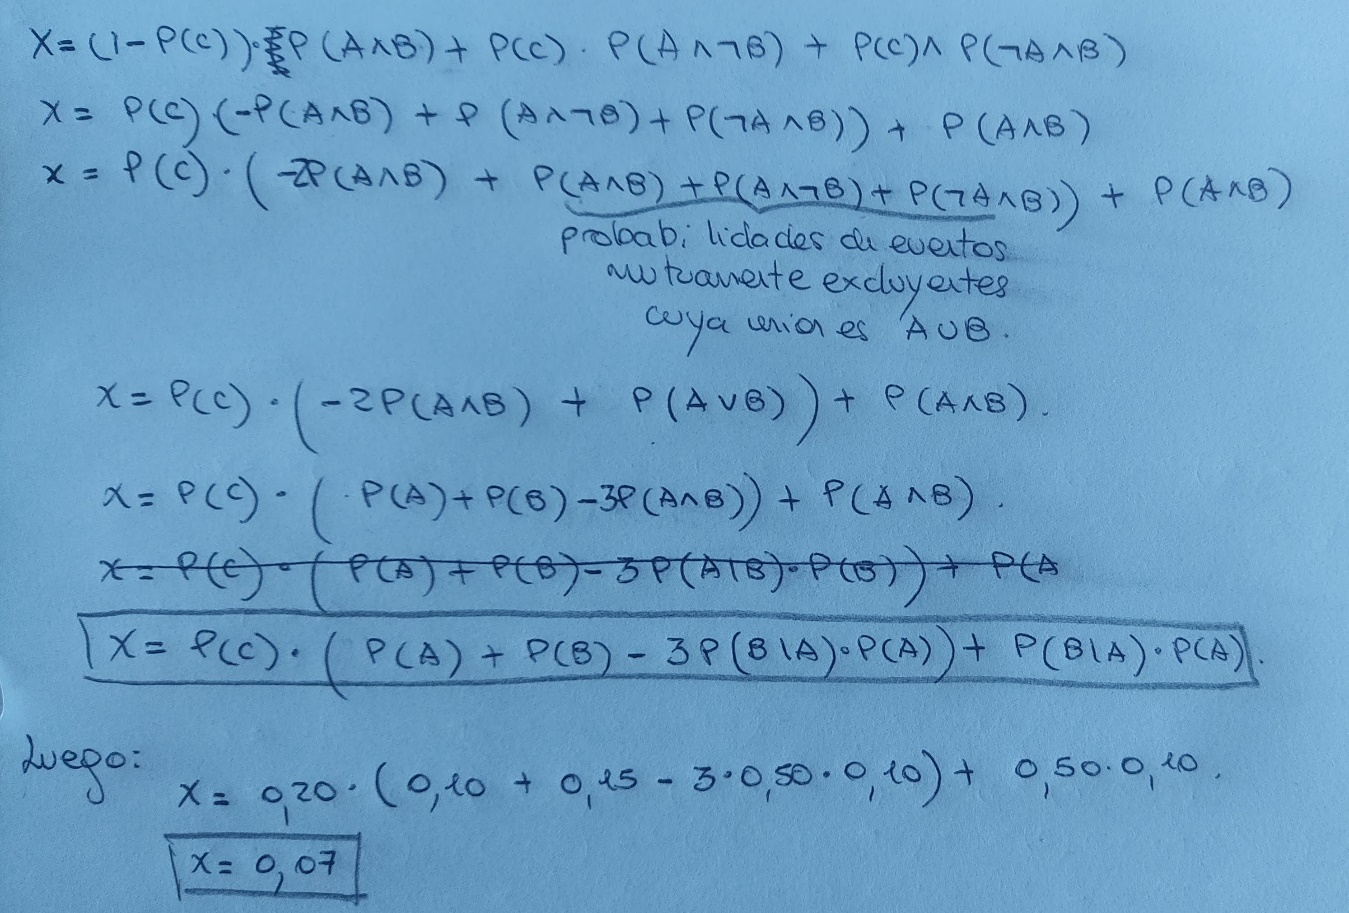 X = (1-P(C)) · P(A∧B) + P(C) · P(A∧¬B) + P(C) ∧ P(¬A∧B)
X = P(C) (-P(A∧B) + P(A∧¬B) + P(¬A∧B)) + P(A∧B)
x = P(C) · (-2P(A∧B) + P(A∧B) + P(A∧¬B) + P(¬A∧B)) + P(A∧B)
probabilidades de eventos
mutuamente excluyentes
cuya union es A∪B.
X = P(C) · (-2P(A∧B) + P(A∨B)) + P(A∧B).
X = P(C) · (P(A) + P(B) - 3P(A∧B)) + P(A∧B).
X = P(C) · (P(A) + P(B) - 3P(A|B)·P(B)) + P(A
X = P(C) · (P(A) + P(B) - 3P(B|A)·P(A)) + P(B|A)·P(A).
Luego:
X = 0,20 · (0,10 + 0,15 - 3·0,50·0,10) + 0,50·0,10.
X = 0,07